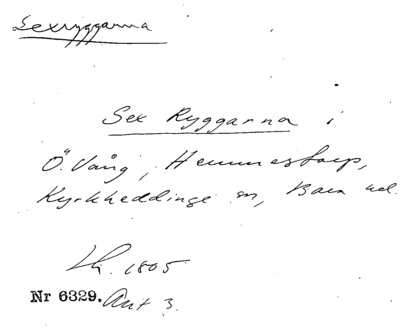 Sexryggarna
Sex Ryggarna i
Ö. Vång, Hemmestorp,
Kyrkheddinge sn, Bara hd.
Lh. 1805
Nr 6329. Akt 3.